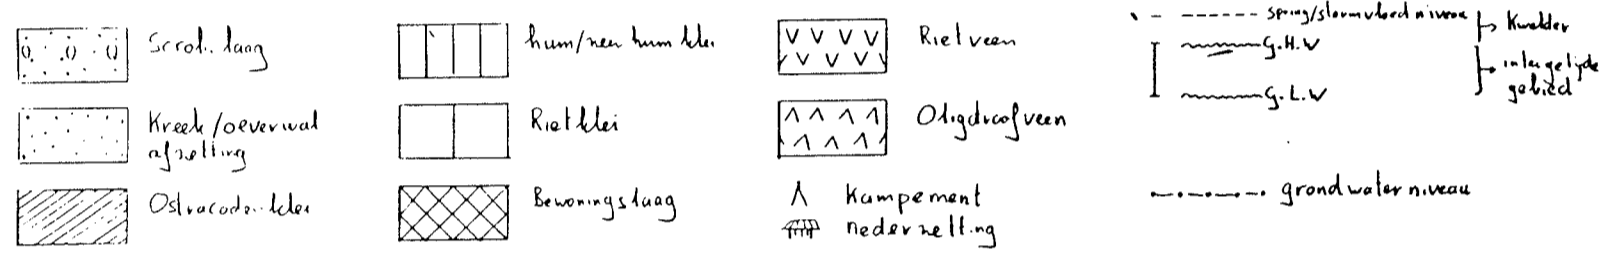 Scrob. laag
Kreek/oeverwal
afzetting
Ostracode. klei
hum/neu hum klei
Rietklei
Bewoningslaag
Rietveen
Oligotroof veen
Kampement
nederzetting
spring/stormvloed niveau
Kwelder
G.H.W
intergetijde
gebied
G.L.W
grondwaterniveau